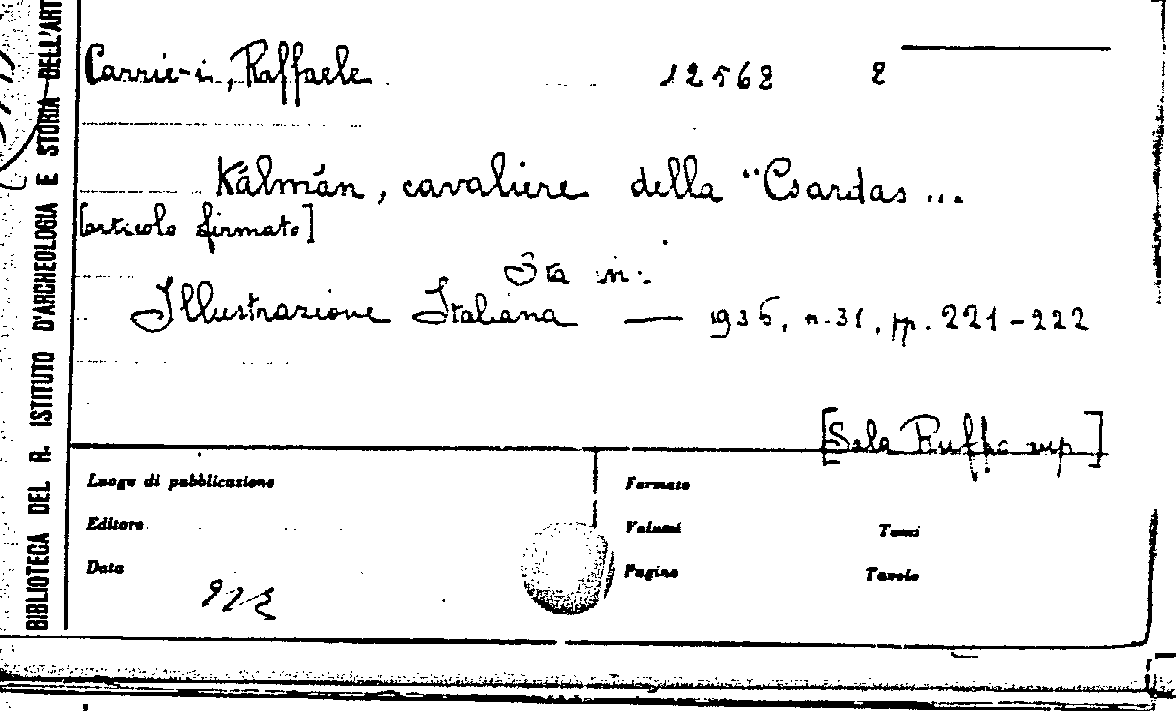 Carrie-i, Raffaele 12568 2
Kálmán, cavaliere della "Csardas...
[articolo firmato]
Sta in:
Illustrazione Italiana — 1936, n. 31, pp. 221-222
[Sala
Luogo di pubblicazione Formato
Editore Volumi Tomi
Data Pagine Tavole
BIBLIOTECA DEL R. ISTITUTO D'ARCHEOLOGIA E STORIA DELL'ART